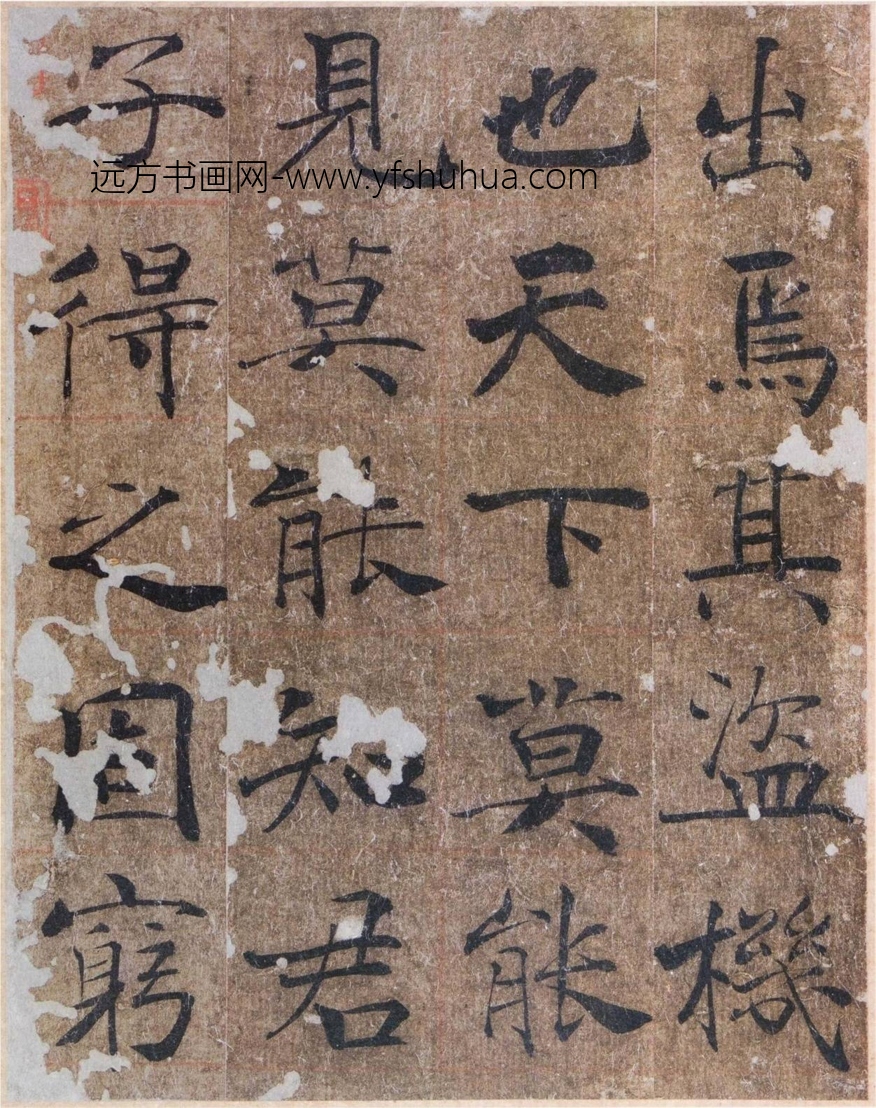 出焉其盜機
也天下莫能
見莫能知君
子得之固窮
远方书画网-www.yfshuhua.com